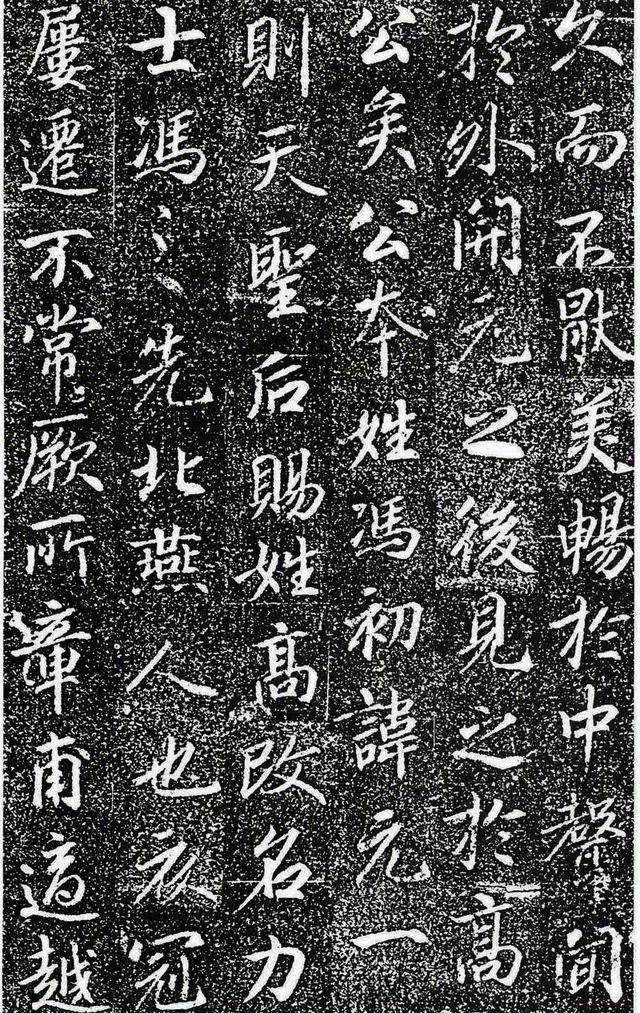 久而不厭美暢於中馨聞
於外開元之後見之於高
公矣公本姓馮初諱元一
則天聖后賜姓高改名力
士馮之先北燕人也衣冠
屢遷不常厥所章甫適越